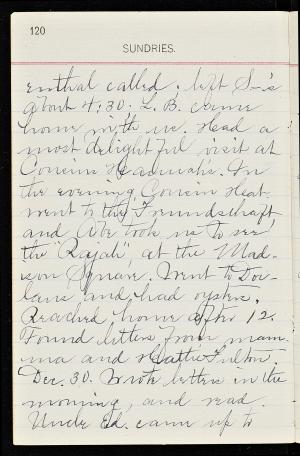 120
SUNDRIES.
enthal called; left S-'s
about 4:30. L. B. came
home with us. Had a
most delightful visit at
Cousin Hannah's. In
the evening Cousin Hat.
went to the "Freundschaft"
and Abe took us to see
the "Rajah", at the Mad-
ison Square. Went to Dor-
lans and had oysters.
Reached home after 12.
Found letters from mam-
ma and Hattie Fulton.
Dec. 30. Wrote letters in the
morning, and read.
Uncle Ed. came up to